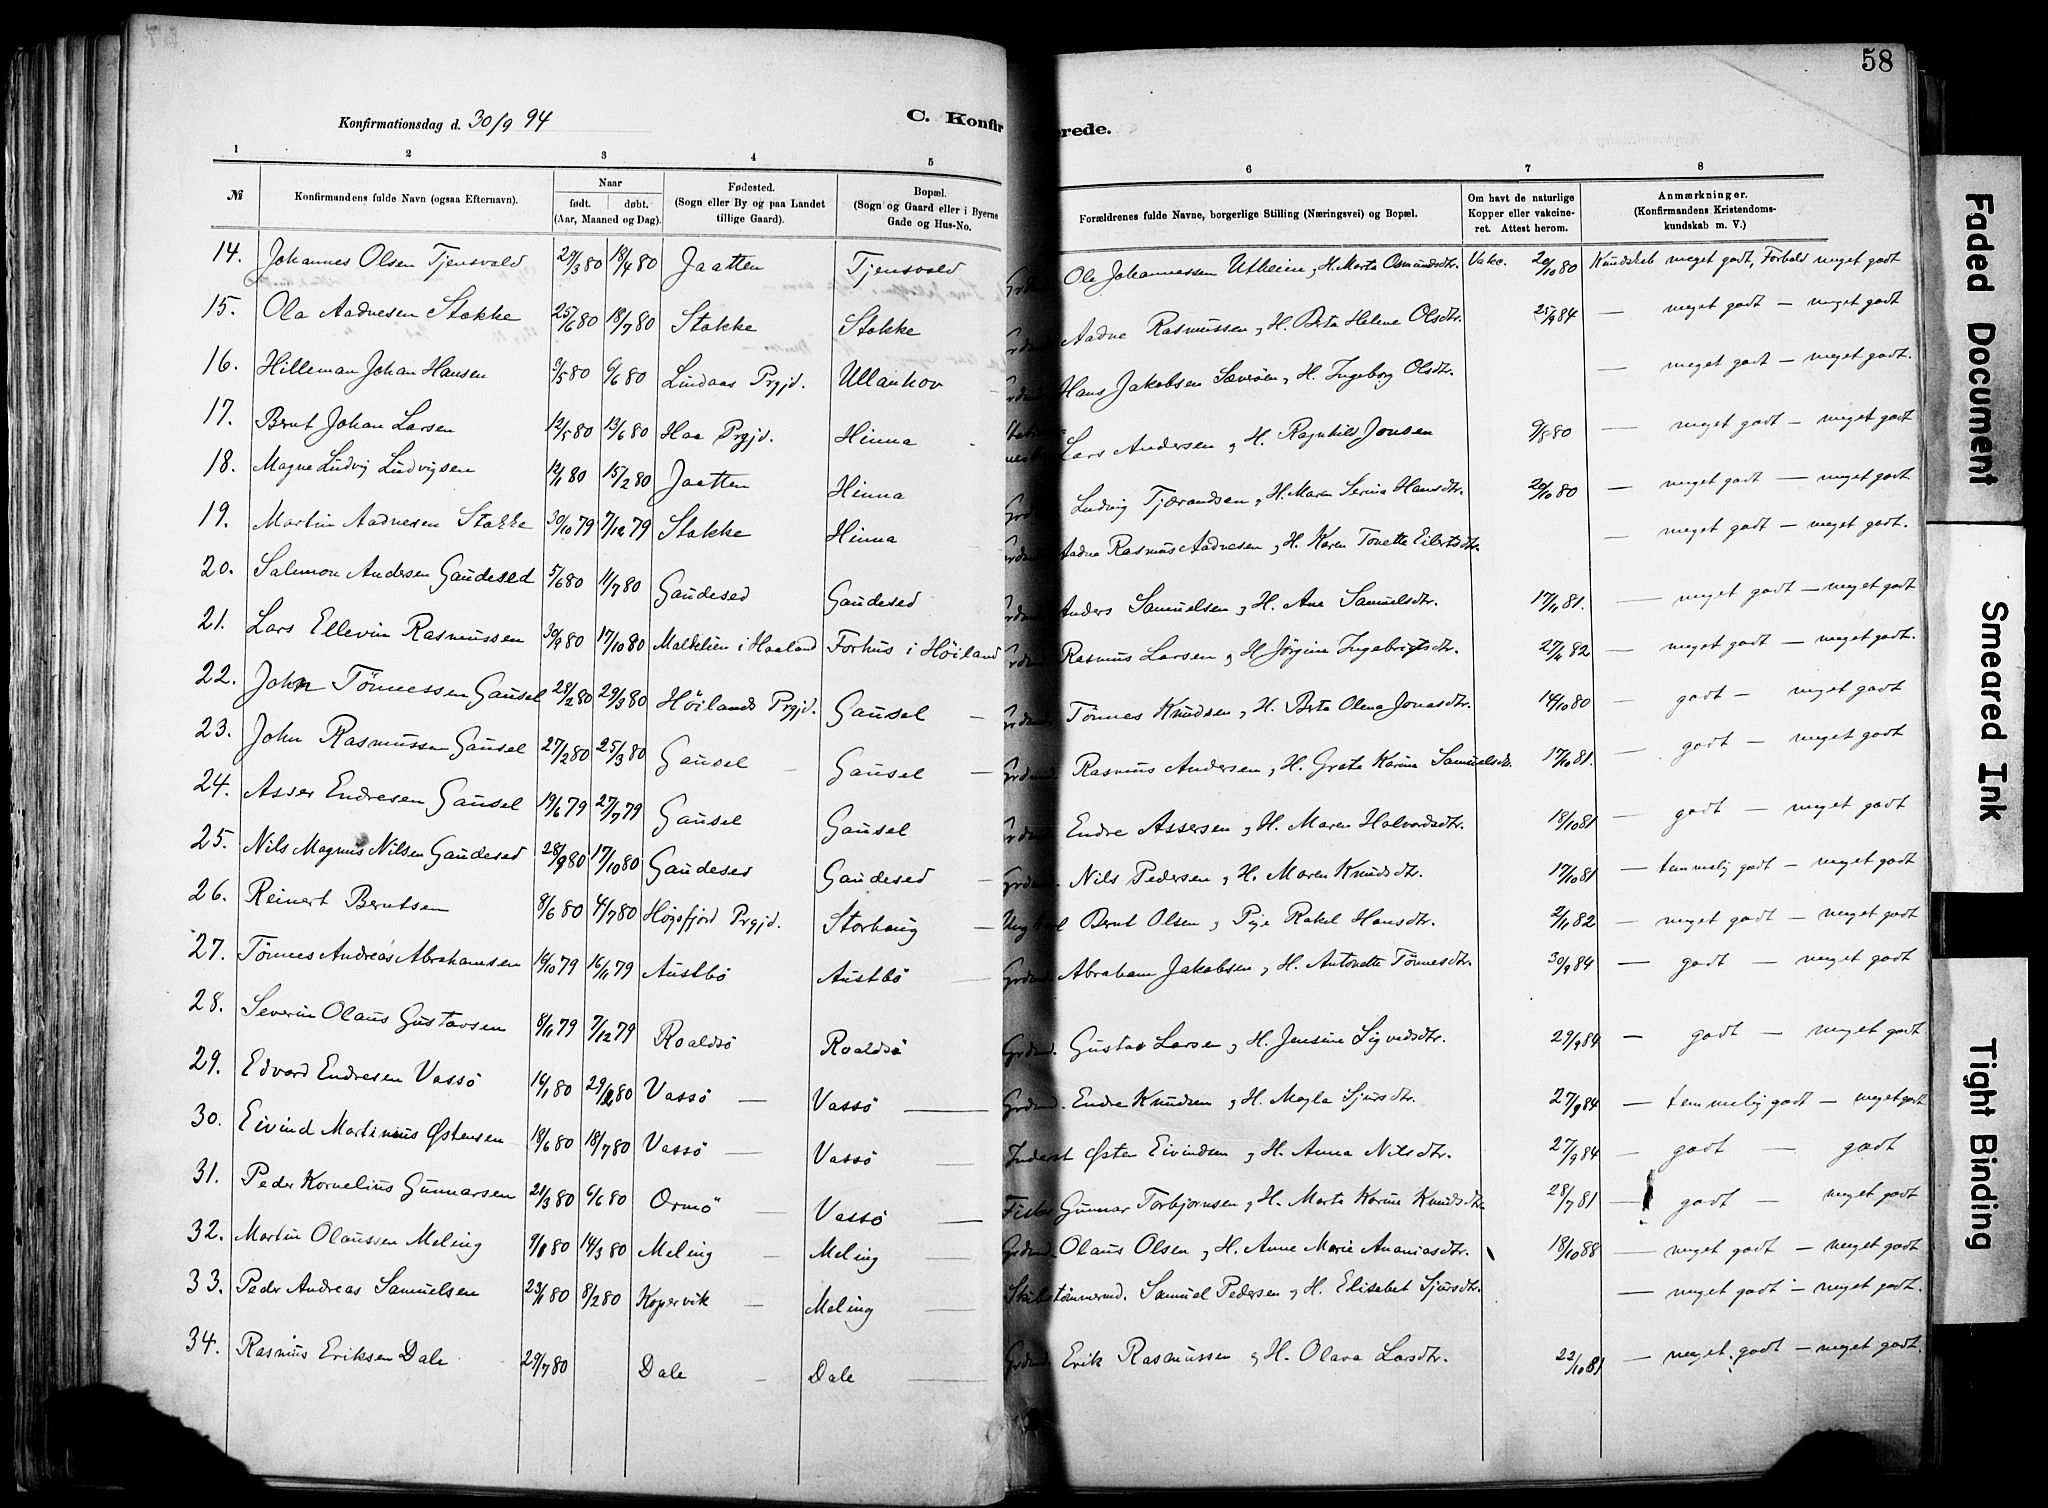 58
Konfirmationsdag d. 30/9 94 C. Konfir erede.
1 2 3 4 5 6 7 8
№ Konfirmandens fulde Navn (ogsaa Efternavn). Naar født. døbt. (Aar, Maaned og Dag). Fødested. (Sogn eller By og paa Landet tillige Gaard). Bopæl. (Sogn og Gaard eller i Byerne Gade og Hus-No. Forældrenes fulde Navne, borgerlige Stilling (Næringsvei) og Bopæl. Om havt de naturlige Kopper eller vakcineret. Attest herom. Anmærkninger. (Konfirmandens Kristendomskundskab m. V.)
14. Johannes Olsen Tjensvold 29/3 80 18/4 80 Jaatten Tjensvold Ole Johannessen Utheien, H. Marta Osmundsdtr. Vakc. 20/10 80 Kundskab meget godt, Forhold meget godt
15. Ola Aadnesen Stokke 25/6 80 18/7 80 Stokke Stokke Aadne Rasmussen, H. Berta Helene Olsdtr. 25/9 84 — meget godt — meget godt
16. Hilleman Johan Hansen 9/5 80 6/6 80 Lindaas Prgjd. Ullanhov Hans Jakobsen Sæveröen, H. Ingeborg Olsdtr. — meget godt — meget godt.
17. Bernt Johan Larsen 12/5 80 13/6 80 Haa Prgjd. Hinna Lars Andersen, H. Ragnhild Jonsen 9/8 80 — meget godt — meget godt
18. Magne Ludvig Ludvigsen 12/1 80 15/2 80 Jaatten Hinna Ludvig Tjærandsen, H. Maren Serina Hansdtr. 20/10 80 — meget godt — meget godt
19. Martin Aadnesen Stokke 30/10 79 7/12 79 Stokke Hinna Aadne Rasmus Aadnesen, H. Karen Tonette Eilertsdtr. — meget godt — meget godt.
20. Salemon Andersen Gaudesed 5/6 80 11/7 80 Gaudesed Gaudesed Anders Samuelsen, H. Ane Samuelsdtr. 17/11 81. — meget godt — meget godt
21. Lars Ellevin Rasmussen 30/9 80 17/10 80 i Haaland Forhus i Höiland Rasmus Larsen, H Jörgine Ingebrigtsdtr. 82 — meget godt — meget godt.
22. John Tönnessen Gausel 28/2 80 29/3 80 Höilands Prgjd. Gausel — Grdmd. Tönnes Knudsen, H. Berta Olena Jonasdtr. 14/10 80 — godt — meget godt
23. John Rasmussen Gausel 27/2 80 25/3 80 Gausel — Gausel — Grdmd. Rasmus Andersen, H. Grete Karine Samuelsdtr. 17/10 81. — godt — meget godt
24. Asser Endresen Gausel 19/6 79 27/7 79 Gausel Gausel Grdmd. Endre Assersen, H. Maren Halvordsdtr. 18/10 81 — godt — meget godt
25. Nils Magnus Nilsen Gaudesed 28/9 80 17/10 80 Gaudesed Gaudesed — Grdmd. Nils Pedersen, H. Maren Knudsdtr. 17/10 81 — temmelig godt — meget godt
26. Reinert Berntsen 8/6 80 4/7 80 Høgsfjord Prgjd. Storhaug — Ungkarl Bernt Olsen, Pige Rakel Hansdtr. 2/11 82 — meget godt — meget godt
27. Tönnes Andreas Abrahamsen 14/10 79 16/11 79 Austbö Austbö — Grdmd. Abraham Jakobsen, H. Antonette Tönnesdtr. 30/9 84 — godt — meget godt
28. Severin Olaus Gustavsen 8/11 79 7/12 79 Roaldsö Roaldsö Grdmd. Gustav Larsen, H. Jensine Sigvedsdtr. 29/9 84 — godt — meget godt
29. Edvard Endresen Vassö 16/1 80 29/2 80 Vassö — Vassö — Grdmd. Endre Knudsen, H. Magla Sjursdtr. 27/9 84 — temmelig godt — meget godt
30. Eivind Martinius Østensen 18/6 80 18/7 80 Vassö — Vassö — Inderst Østen Eivindsen, H. Anna Nilsdtr. 27/9 84 — godt — godt
31. Peder Kornelius Gunnarsen 21/3 80 6/6 80 Ormö — Vassö — Fisker Gunnar Torbjornsen, H. Marta Karine Knudsdtr. 28/7 81 — godt — meget godt
32. Martin Olaussen Meling 9/1 80 14/3 80 Meling — Meling — Grdmd. Olaus Olsen, H. Anne Marie Ananiasdtr. 18/10 88 — meget godt — meget godt
33. Peder Andreas Samuelsen 23/1 80 8/2 80 Kopervik — Meling — Skibstömmermd. Samuel Pedersen, H. Elisabet Sjursdtr. — meget godt — meget godt.
34. Rasmus Eriksen Dale 29/7 80 Dale — Dale — Grdmd. Erik Rasmussen, H. Olava Larsdtr. 22/10 81 — meget godt — meget godt.
Faded Document
Smeared Ink
Tight Binding